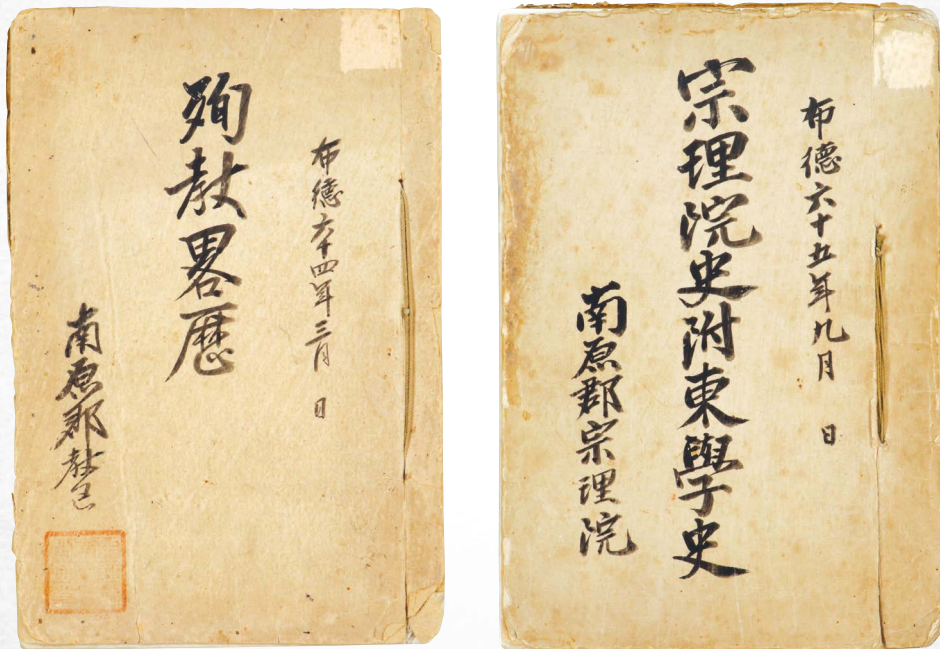 布德六十四年三月 日
殉教畧歷
南原郡教區
布德六十五年九月 日
宗理院史附東學史
南原郡宗理院